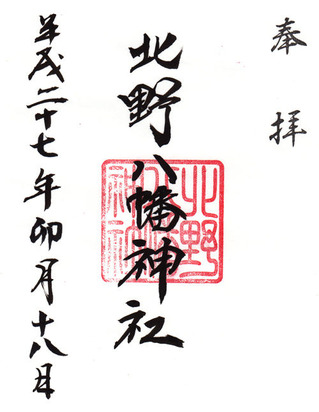 奉拝
北野八幡神社
北野八幡神社
平成二十七年卯月十八日